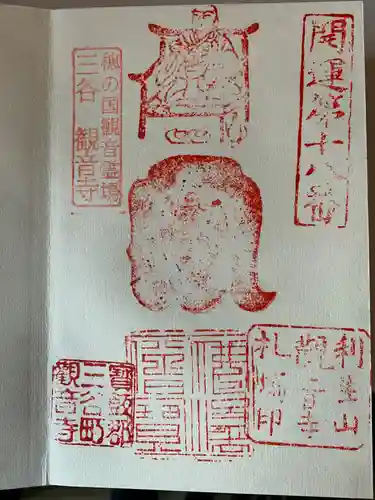 開運第十八番
穂の国観音霊場
三谷 観音寺
利生山
観音寺
札場印
寶飯郡
三谷町
観音寺